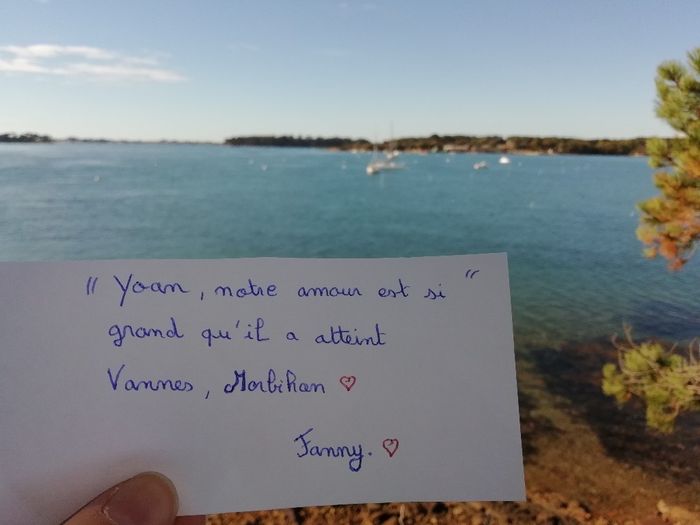 " Yoan, notre amour est si "
grand qu'il a atteint
Vannes, Morbihan ♡
Fanny. ♡